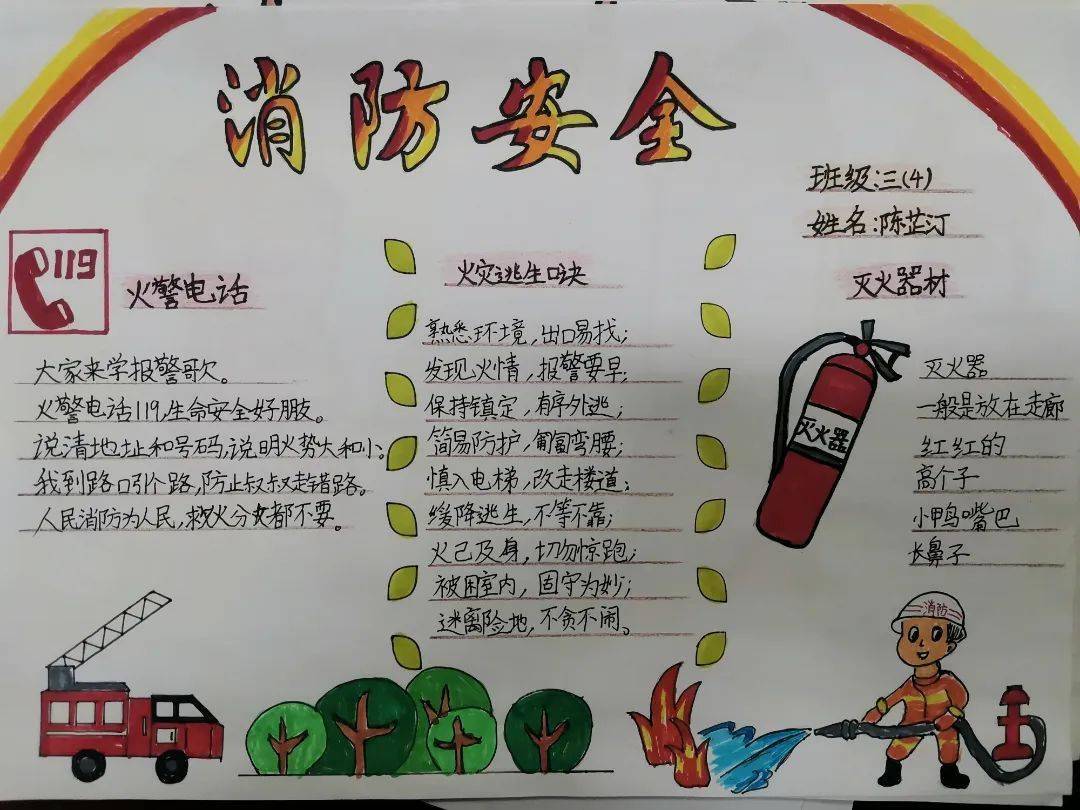 消防安全
班级:三(4)
姓名:陈芷汀
119
火警电话
大家来学报警歌。
火警电话119,生命安全好朋友。
说清地址和号码,说明火势大和小。
我到路口引个路,防止叔叔走错路。
人民消防为人民,救火分文都不要。
火灾逃生口诀
熟悉环境,出口易找;
发现火情,报警要早;
保持镇定,有序外逃;
简易防护,匍匐弯腰;
慎入电梯,改走楼道;
缓降逃生,不等不靠;
火已及身,切勿惊跑;
被困室内,固守为妙;
迷离险地,不贪不闹。
灭火器材
灭火器
灭火器
一般是放在走廊
红红的
高个子
小鸭嘴巴
长鼻子
消防